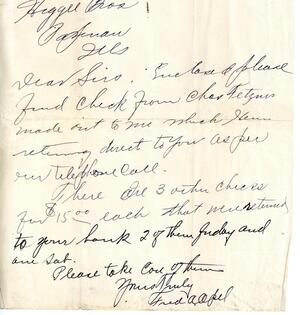 Heggee Bros
Ills
Dear Sirs. Enclosed please
find Check from Chas
made out to me which I am
returning direct to you as per
our telephone call.
There are 3 other checks
for $15.00 each that were returned
to your bank 2 of them Friday and
one Sat.
Please take care of them
Yours truly
Fred